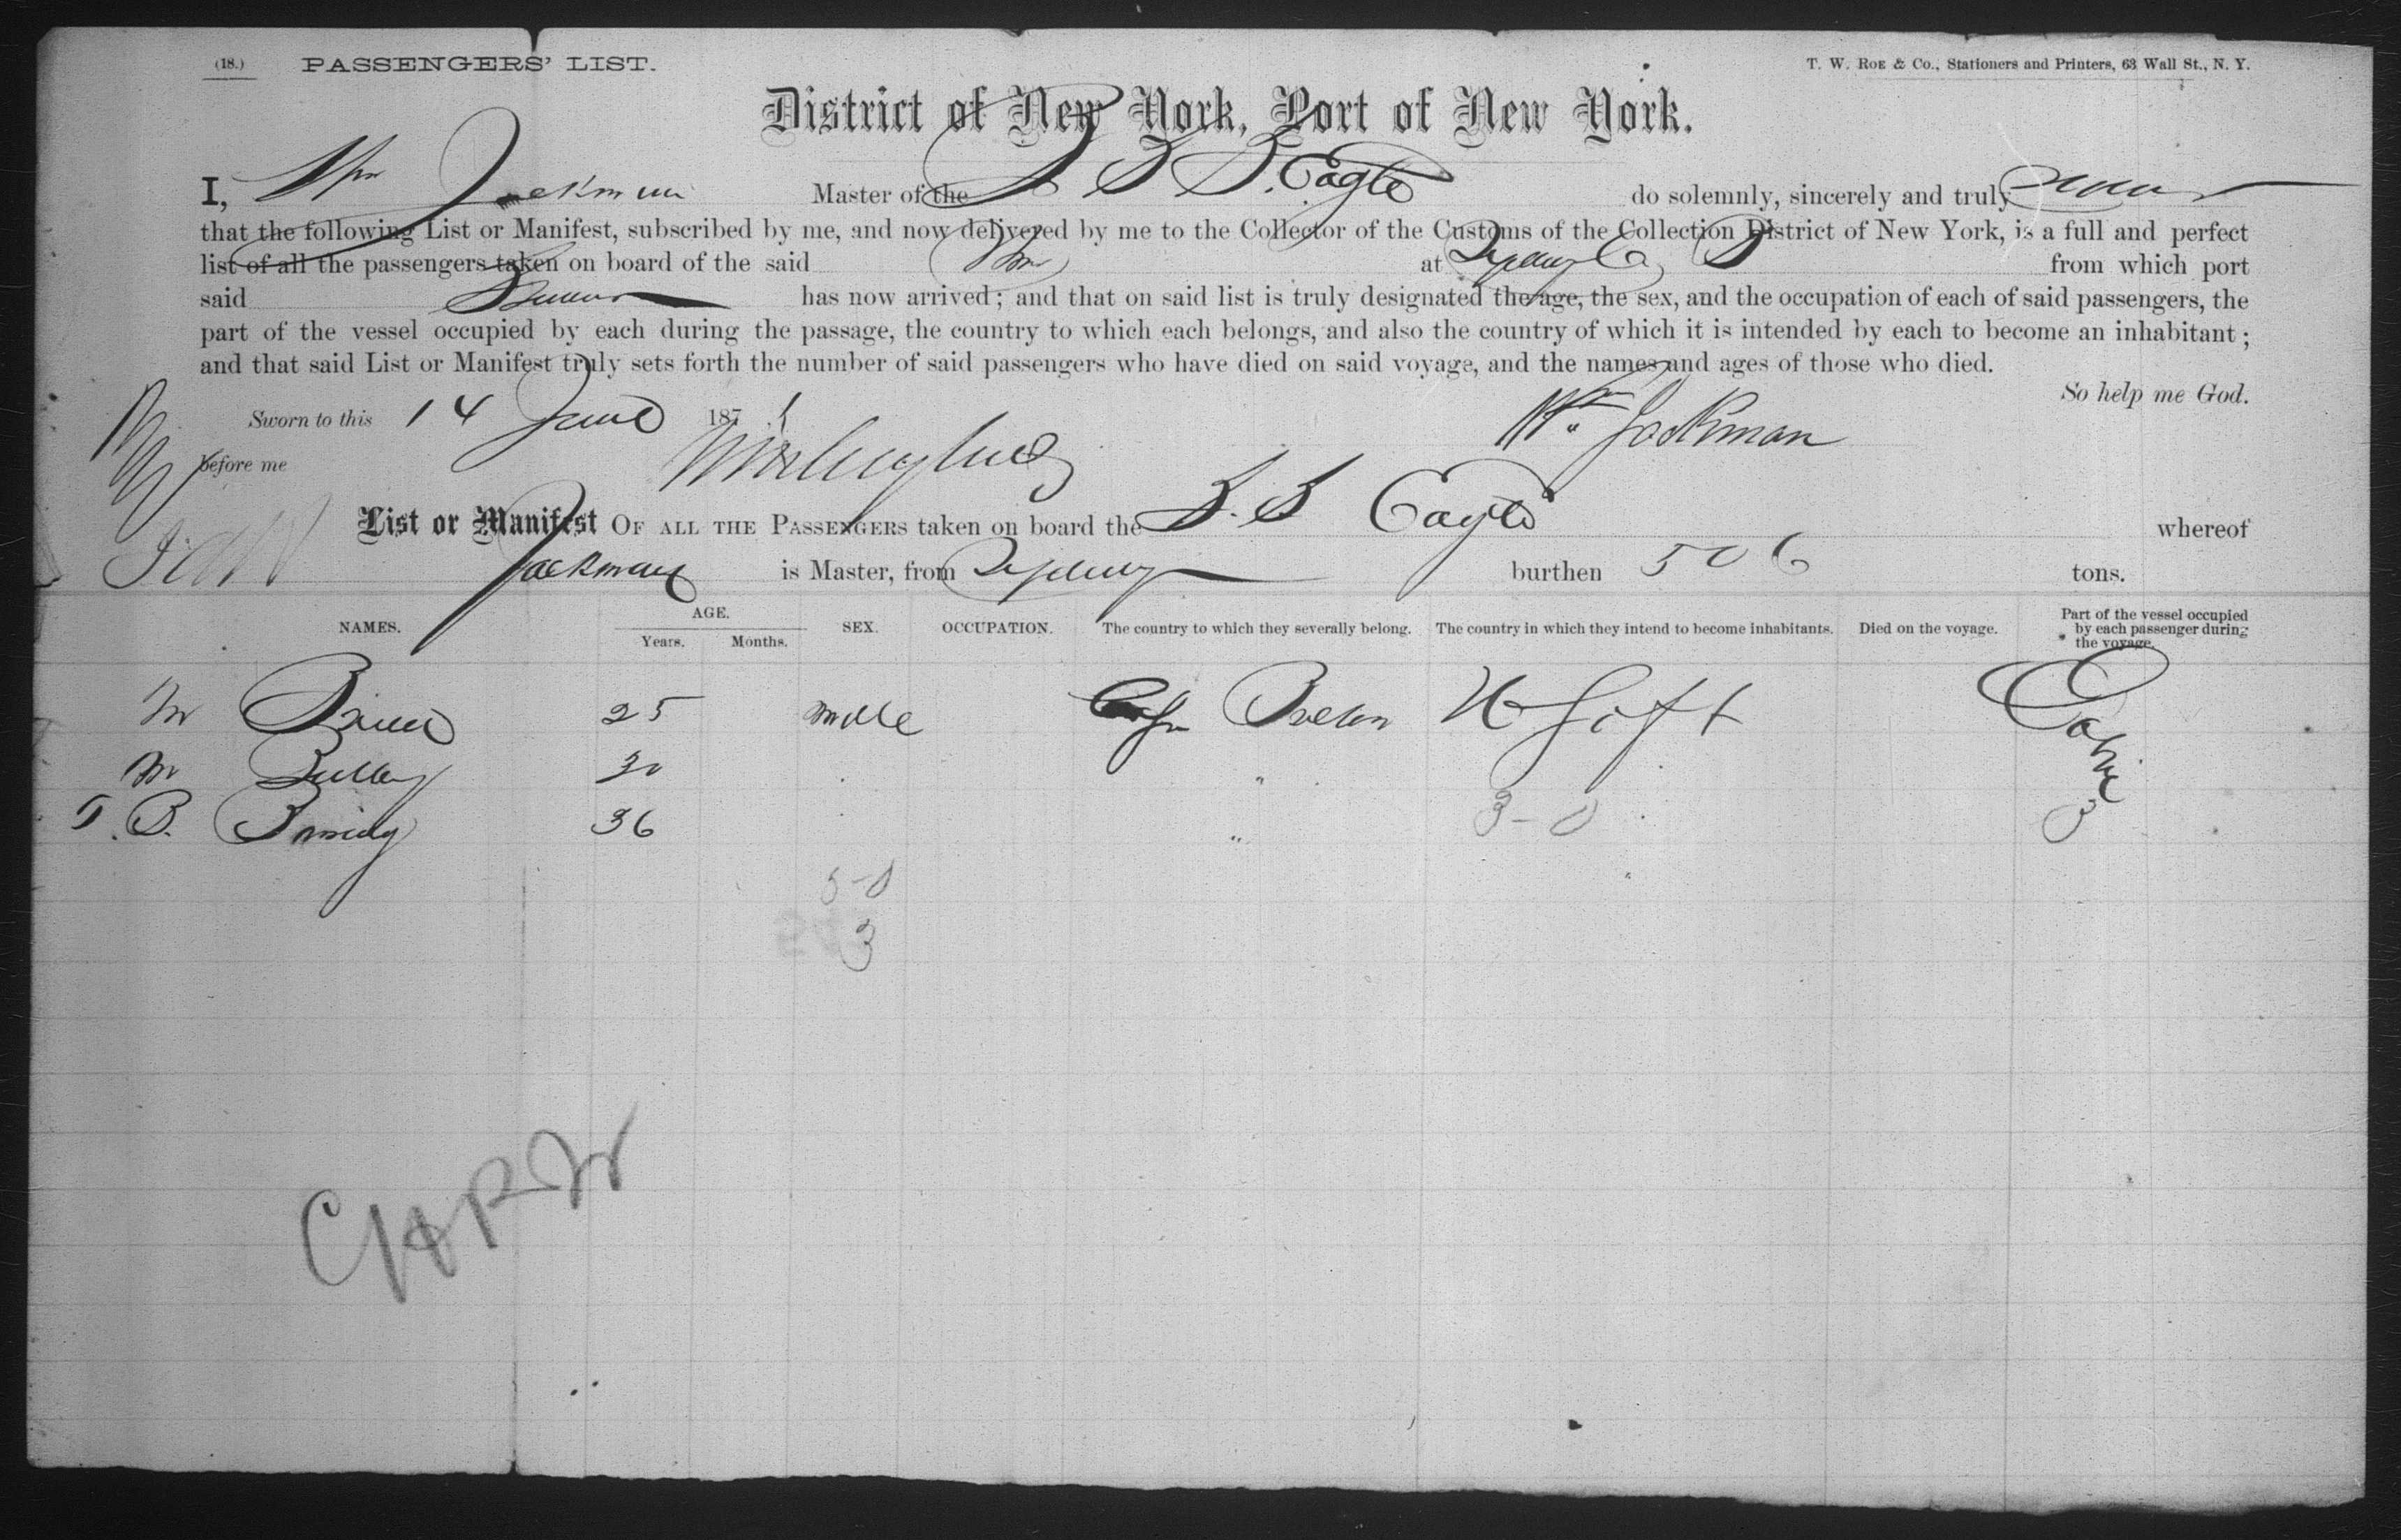 (18.) PASSENGERS' LIST. T. W. ROE & Co., Stationers and Printers, 63 Wall St., N. Y.
District of New York, Port of New York.
I, Wm Jackman Master of the S S Eagle do solemnly, sincerely and truly swear
that the following List or Manifest, subscribed by me, and now delivered by me to the Collector of the Customs of the Collection District of New York, is a full and perfect
list of all the passengers taken on board of the said at Sydney C B from which port
said Steamer has now arrived; and that on said list is truly designated the age, the sex, and the occupation of each of said passengers, the
part of the vessel occupied by each during the passage, the country to which each belongs, and also the country of which it is intended by each to become an inhabitant;
and that said List or Manifest truly sets forth the number of said passengers who have died on said voyage, and the names and ages of those who died.
So help me God.
Sworn to this 14 June 187 Wm Jackman
before me
List or Manifest OF ALL THE PASSENGERS taken on board the S. S Eagle whereof
Jackman is Master, from Sydney burthen 506 tons.
NAMES. AGE. Years. Months. SEX. OCCUPATION. The country to which they severally belong. The country in which they intend to become inhabitants. Died on the voyage. Part of the vessel occupied by each passenger during the voyage.
25 male Cape Breton Cabin
30 "
T. B. 36 " 3-0
3